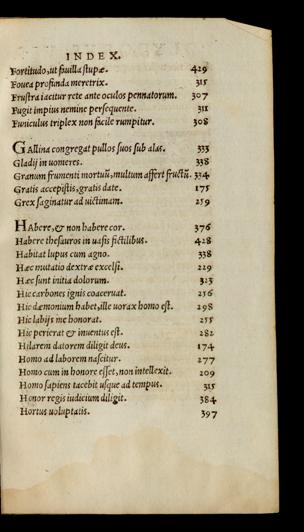 INDEX.
Fortitudo, ut fauilla stupæ. 429
Fouea profunda meretrix. 315
Frustra iacitur rete ante oculos pennatorum. 307
Fugit impius nemine persequente. 311
Funiculus triplex non facile rumpitur. 308
Gallina congregat pullos suos sub alas. 333
Gladij in uomeres. 338
Granum frumenti mortuũ, multum affert fructũ. 334
Gratis accepistis, gratis date. 175
Grex saginatur ad uictimam. 259
Habere, & non habere cor. 376
Habere thesauros in uasis fictilibus. 428
Habitat lupus cum agno. 338
Hæc mutatio dextræ excelsi. 229
Hæc sunt initia dolorum. 323
Hic carbones ignis coaceruat. 256
Hic dæmonium habet, ille uorax homo est. 298
Hic labijs me honorat. 255
Hic perierat & inuentus est. 282
Hilarem datorem diligit deus. 174
Homo ad laborem nascitur. 277
Homo cum in honore esset, non intellexit. 209
Homo sapiens tacebit usque ad tempus. 315
Honor regis iudicium diligit. 384
Hortus uoluptatis. 397